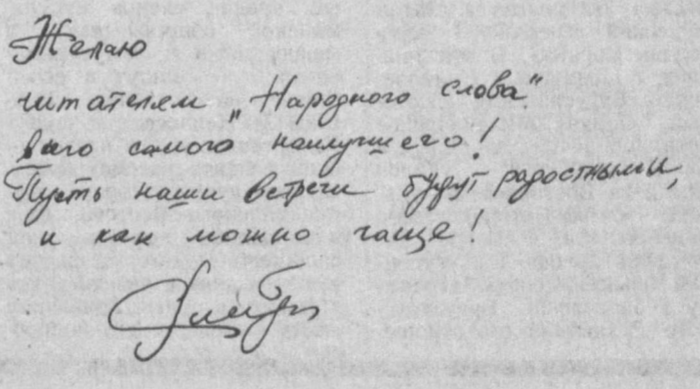 Желаю
читателям "Народного слова"
всего самого наилучшего!
Пусть наши встречи будут радостными,
и как можно чаще!